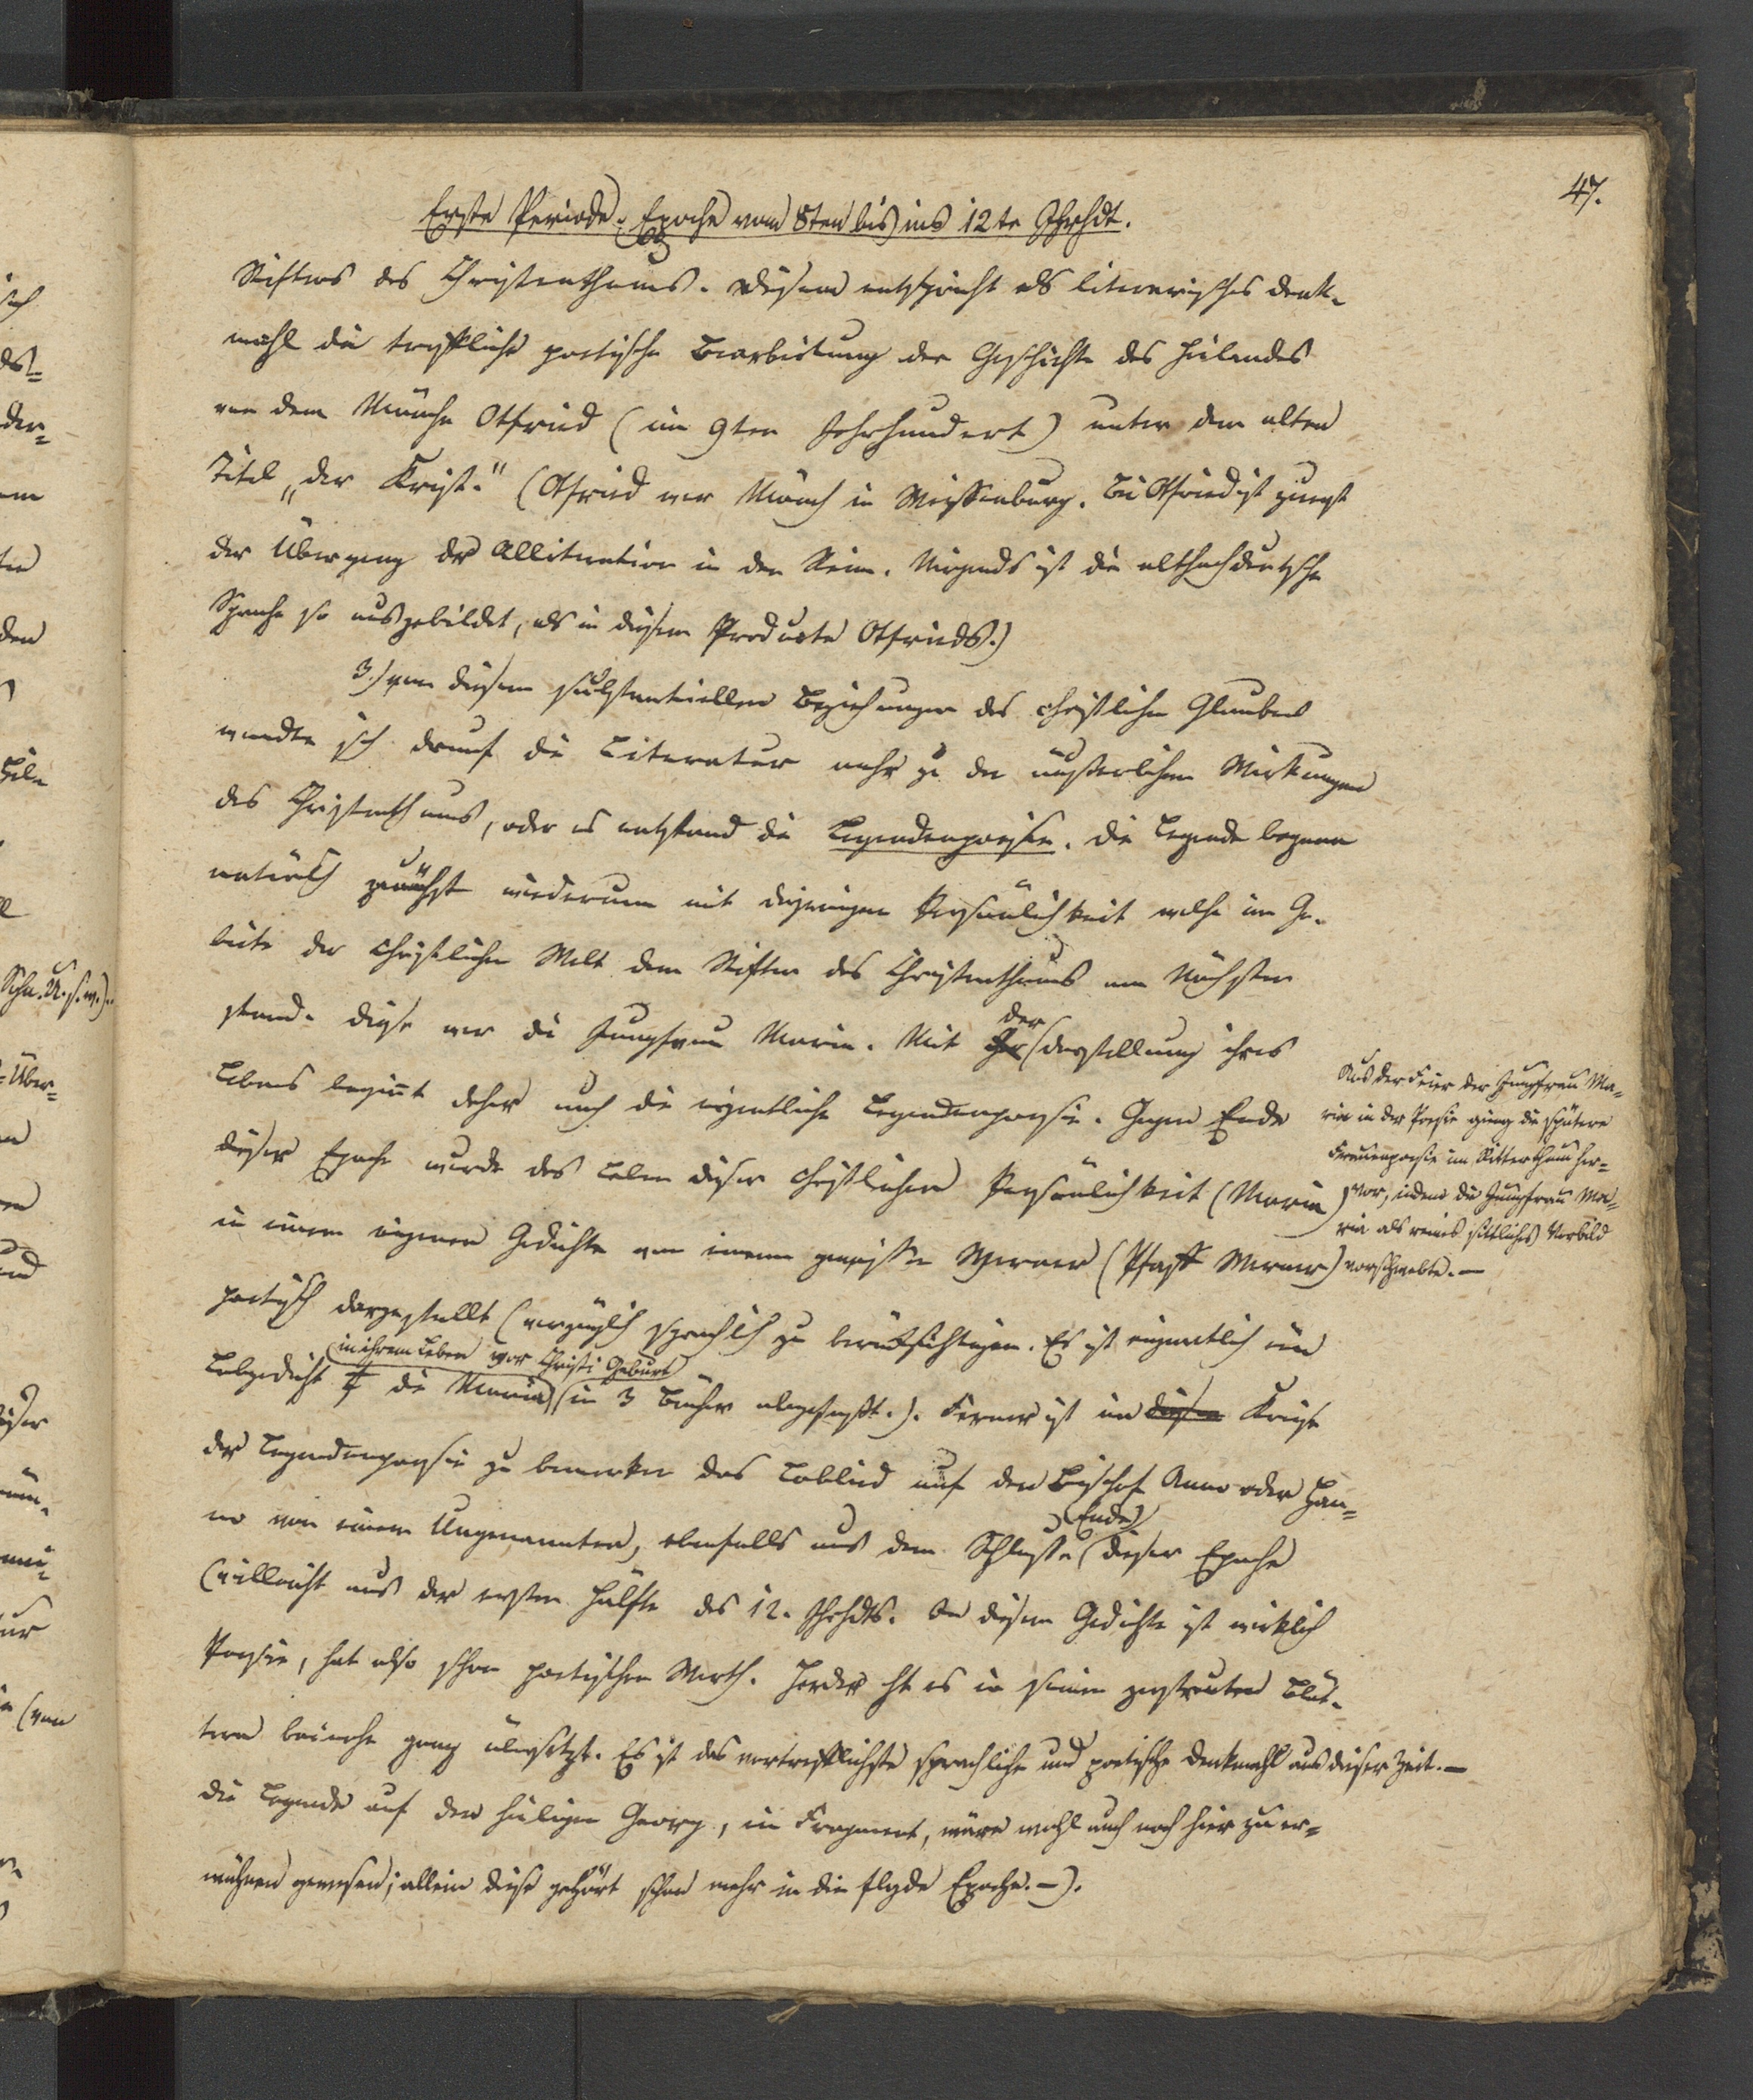 47.
Erste Periode. Epoche vom 8ten bis ins 12te Jhrhdt.
Stifters des Christenthums. Diesem entspricht als literarisches Denk-
mahl die treffliche poetische Bearbeitung der Geschichte des Heilandes
von dem Mönche Otfried (im 9ten Jahrhundert) unter dem alten
Titel „der Krist." (Otfried war Mönch in Weissenburg. Bei Otfried ist zuerst
der Übergang der Alliteration in den Reim. Nirgends ist die althochdeutsche
Sprache so ausgebildet, als in diesem Producte Otfrieds.)
3.) von diesem substantiellen Beziehungen des christlichen Glaubens
wandte sich darauf die Literatur mehr zu den äußerlichen Wirkungen
des Christenthums, oder es entstand die Legendenpoesie. Die Legende begann
natürlich zunächst wiederum mit derjenigen Persönlichkeit welche im Ge-
biete der christlichen Welt dem Stifter des Christenthums am Nächsten
stand. Diese war die Jungfrau Maria. Mit der Darstellung ihres
Lebens beginnt daher auch die eigentliche Legendenpoesie. Gegen Ende
dieser Epoche wurde das Leben dieser christlichen Persönlichkeit (Maria)
in einem eigenen Gedichte von einem gewissen Werner (Pfaff Werner)
poetisch dargestellt (vorzüglich sprachlich zu berücksichtigen. Es ist eigentlich ein
in ihrem Leben vor Christi Geburt
Lobgedicht die Maria) (in 3 Bücher abgefaßt.). Ferner ist im diesem Kreise
der Legendenpoesie zu bemerken das Loblied auf den Bischof Anno oder Han-
no von einem Ungenannten, ebenfalls aus dem Schlusse (Ende) dieser Epoche
(vielleicht aus der ersten Hälfte des 12. Jhrhdts. In diesem Gedichte ist wirklich
Poesie, hat also schon poetischen Werth. Herder hat es in seinen zerstreuten Blät-
tern beinahe ganz übersetzt. Es ist das vortrefflichste sprachliche und poetische Denkmahl aus dieser Zeit.—
Die Legende auf den heiligen Georg, ein Fragment, wäre wohl auch noch hier zu er-
wähnen gewesen; allein diese gehört schon mehr in die flgde Epoche.—).
Aus der Feier der Jungfrau Ma-
ria in der Poesie ging die spätere
Frauenpoesie im Ritterthum her-
vor, indem die Jungfrau Ma-
ria als reines sittliches Vorbild
vorschwebte.—